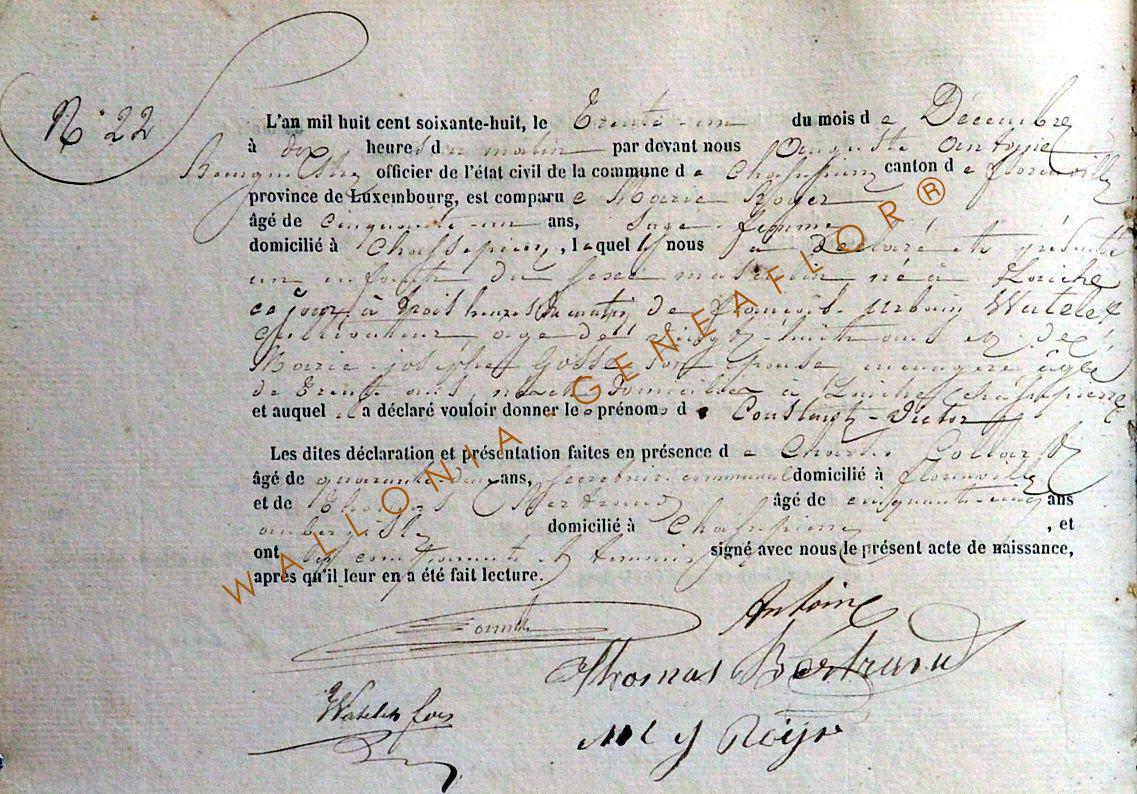 N° 22
L'an mil huit cent soixante-huit, le Trente-un du mois de Décembre
à dix heures du matin par devant nous Auguste Antoine
Bourgmestre officier de l'état civil de la commune de Chassepierre canton de florenville
province de Luxembourg, est comparue Marie Royer
âgé de cinquante-un ans, sage femme
domicilié à Chassepierre, laquelle nous a déclaré et présenté
un enfant du sexe masculin né à Laiche
ce jour à trois heures du matin de françois urbain Watelet
cultivateur age de vingt-huit ans et de
Marie josephe Gosse son épouse menagère agée
de Trente ans, domiciliés à Laiche chassepierre
et auquel a déclaré vouloir donner les prénoms de Constant-Victor
Les dites déclaration et présentation faites en présence de Charles
âgé de quarante-deux ans, secrétaire communal domicilié à florenville
et de Thomas Bertrand âgé de cinquante-cinq ans
aubergiste domicilié à Chassepierre, et
ont les comparante et temoins signé avec nous le présent acte de naissance,
après qu'il leur en a été fait lecture.
Antoine
Thomas Bertrand
Watelet
M J Roije
WALLONIA GENEAFLOR®